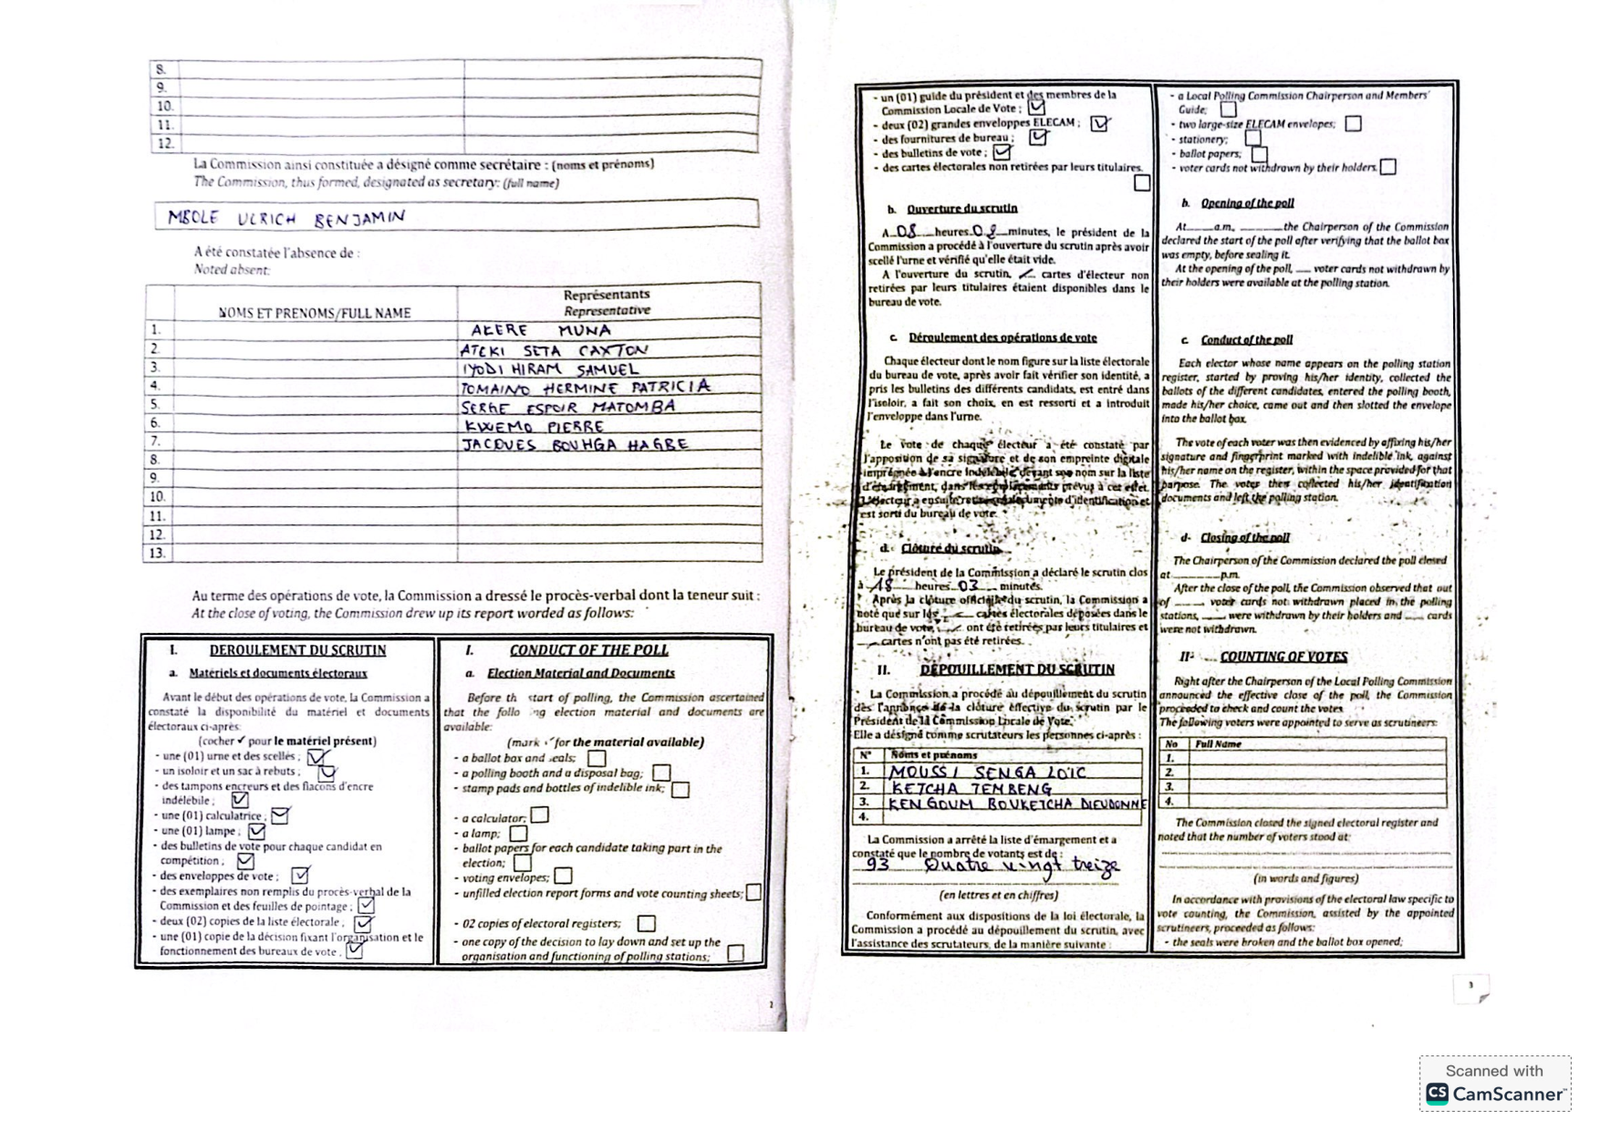 8.
9.
10.
11.
12.
La Commission ainsi constituée a désigné comme secrétaire : (noms et prénoms)
The Commission, thus formed, designated as secretary: (full name)
MBOLE ULRICH BENJAMIN
A été constatée l'absence de :
Noted absent:
NOMS ET PRENOMS/FULL NAME
Représentants
Representative
1. AKERE MUNA
2. ATEKI SETA CAXTON
3. IYODI HIRAM SAMUEL
4. TOMAINO HERMINE PATRICIA
5. SERGE ESPOIR MATOMBA
6. KWEMO PIERRE
7. JACQUES BOUHGA HAGBE
8.
9.
10.
11.
12.
13.
Au terme des opérations de vote, la Commission a dressé le procès-verbal dont la teneur suit :
At the close of voting, the Commission drew up its report worded as follows:
I. DEROULEMENT DU SCRUTIN
a. Matériels et documents électoraux
Avant le début des opérations de vote, la Commission a
constaté la disponibilité du matériel et documents
électoraux ci-après:
(cocher ✓ pour le matériel présent)
- une (01) urne et des scellés ; ☑
- un isoloir et un sac à rebuts ; ☑
- des tampons encreurs et des flacons d'encre
indélébile ; ☑
- une (01) calculatrice ; ☑
- une (01) lampe ; ☑
- des bulletins de vote pour chaque candidat en
compétition ; ☑
- des enveloppes de vote ; ☑
- des exemplaires non remplis du procès-verbal de la
Commission et des feuilles de pointage ; ☑
- deux (02) copies de la liste électorale ; ☑
- une (01) copie de la décision fixant l'organisation et le
fonctionnement des bureaux de vote ; ☑
I. CONDUCT OF THE POLL
a. Election Material and Documents
Before th start of polling, the Commission ascertained
that the follo ng election material and documents are
available:
(mark ✓ for the material available)
- a ballot box and seals; ☐
- a polling booth and a disposal bag; ☐
- stamp pads and bottles of indelible ink; ☐
- a calculator; ☐
- a lamp; ☐
- ballot papers for each candidate taking part in the
election; ☐
- voting envelopes; ☐
- unfilled election report forms and vote counting sheets; ☐
- 02 copies of electoral registers; ☐
- one copy of the decision to lay down and set up the
organisation and functioning of polling stations; ☐
2
- un (01) guide du président et des membres de la
Commission Locale de Vote ; ☑
- deux (02) grandes enveloppes ELECAM ; ☑
- des fournitures de bureau ; ☑
- des bulletins de vote ; ☑
- des cartes électorales non retirées par leurs titulaires.
☐
b. Ouverture du scrutin
A 08 heures 03 minutes, le président de la
Commission a procédé à l'ouverture du scrutin après avoir
scellé l'urne et vérifié qu'elle était vide.
A l'ouverture du scrutin, cartes d'électeur non
retirées par leurs titulaires étaient disponibles dans le
bureau de vote.
c. Déroulement des opérations de vote
Chaque électeur dont le nom figure sur la liste électorale
du bureau de vote, après avoir fait vérifier son identité, a
pris les bulletins des différents candidats, est entré dans
l'isoloir, a fait son choix, en est ressorti et a introduit
l'enveloppe dans l'urne.
Le vote de chaque électeur a été constaté par
l'apposition de sa signature et de son empreinte digitale
imprégnée à l'encre indélébile devant son nom sur la liste
d'émargement, dans les emplacements prévus à cet effet.
L'électeur a ensuite documents d'identification et
est sorti du bureau de vote.
d. Clôture du scrutin
Le président de la Commission a déclaré le scrutin clos
à 18 heures 03 minutes.
Après la clôture officielle du scrutin, la Commission a
noté que sur les cartes électorales déposées dans le
bureau de vote, ont été retirées par leurs titulaires et
cartes n'ont pas été retirées.
II. DÉPOUILLEMENT DU SCRUTIN
La Commission a procédé au dépouillement du scrutin
dès l'annonce de la clôture effective du scrutin par le
Président de la Commission Locale de Vote.
Elle a désigné comme scrutateurs les personnes ci-après :
N° Noms et prénoms
1. MOUSSI SENGA LOIC
2. KETCHA TEMBENG
3. KENGOUM BOUKETCHA DIEUDONNE
4.
La Commission a arrêté la liste d'émargement et a
constaté que le nombre de votants est de :
93 Quatre vingt treize
(en lettres et en chiffres)
Conformément aux dispositions de la loi électorale, la
Commission a procédé au dépouillement du scrutin, avec
l'assistance des scrutateurs, de la manière suivante :
- a Local Polling Commission Chairperson and Members'
Guide; ☐
- two large-size ELECAM envelopes; ☐
- stationery; ☐
- ballot papers; ☐
- voter cards not withdrawn by their holders. ☐
b. Opening of the poll
At____a.m, ____the Chairperson of the Commission
declared the start of the poll after verifying that the ballot box
was empty, before sealing it.
At the opening of the poll, ___ voter cards not withdrawn by
their holders were available at the polling station.
c. Conduct of the poll
Each elector whose name appears on the polling station
register, started by proving his/her identity, collected the
ballots of the different candidates, entered the polling booth,
made his/her choice, came out and then slotted the envelope
into the ballot box.
The vote of each voter was then evidenced by affixing his/her
signature and fingerprint marked with indelible ink, against
his/her name on the register, within the space provided for that
purpose. The voter then collected his/her identification
documents and left the polling station.
d- Closing of the poll
The Chairperson of the Commission declared the poll closed
at________p.m.
After the close of the poll, the Commission observed that out
of _____ voter cards not withdrawn placed in the polling
stations, ____ were withdrawn by their holders and ____ cards
were not withdrawn.
II- COUNTING OF VOTES
Right after the Chairperson of the Local Polling Commission
announced the effective close of the poll, the Commission
proceeded to check and count the votes
The following voters were appointed to serve as scrutineers:
No Full Name
1.
2.
3.
4.
The Commission closed the signed electoral register and
noted that the number of voters stood at:
(in words and figures)
In accordance with provisions of the electoral law specific to
vote counting, the Commission, assisted by the appointed
scrutineers, proceeded as follows:
- the seals were broken and the ballot box opened;
3
Scanned with
CS CamScanner™